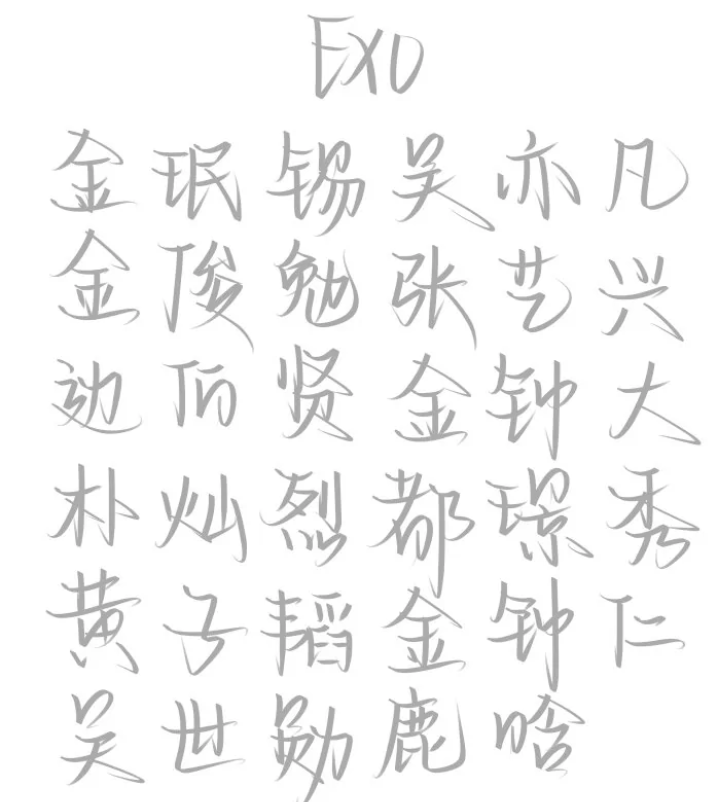 EXO
金珉锡吴亦凡
金俊勉张艺兴
边伯贤金钟大
朴灿烈都暻秀
黄子韬金钟仁
吴世勋鹿晗